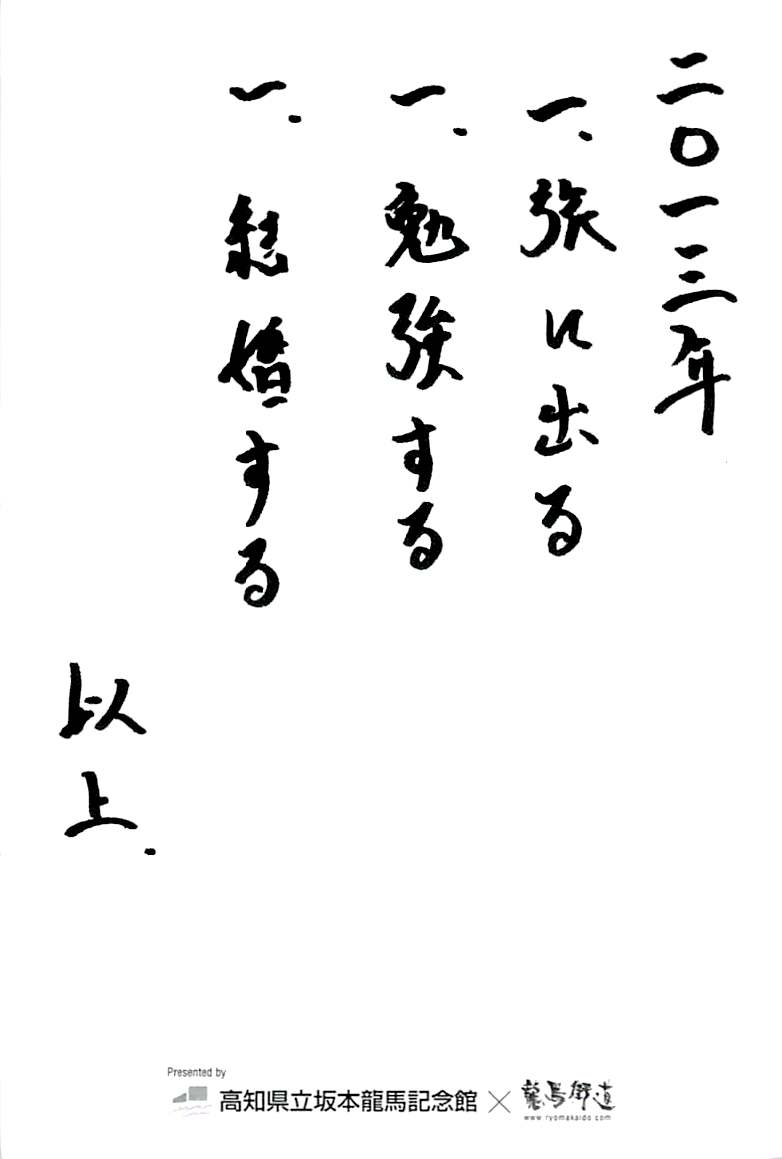 二〇一三年
一、旅に出る
一、勉強する
一、結婚する
以上.
Presented by
高知県立坂本龍馬記念館×龍馬街道
www.ryomakaido.com